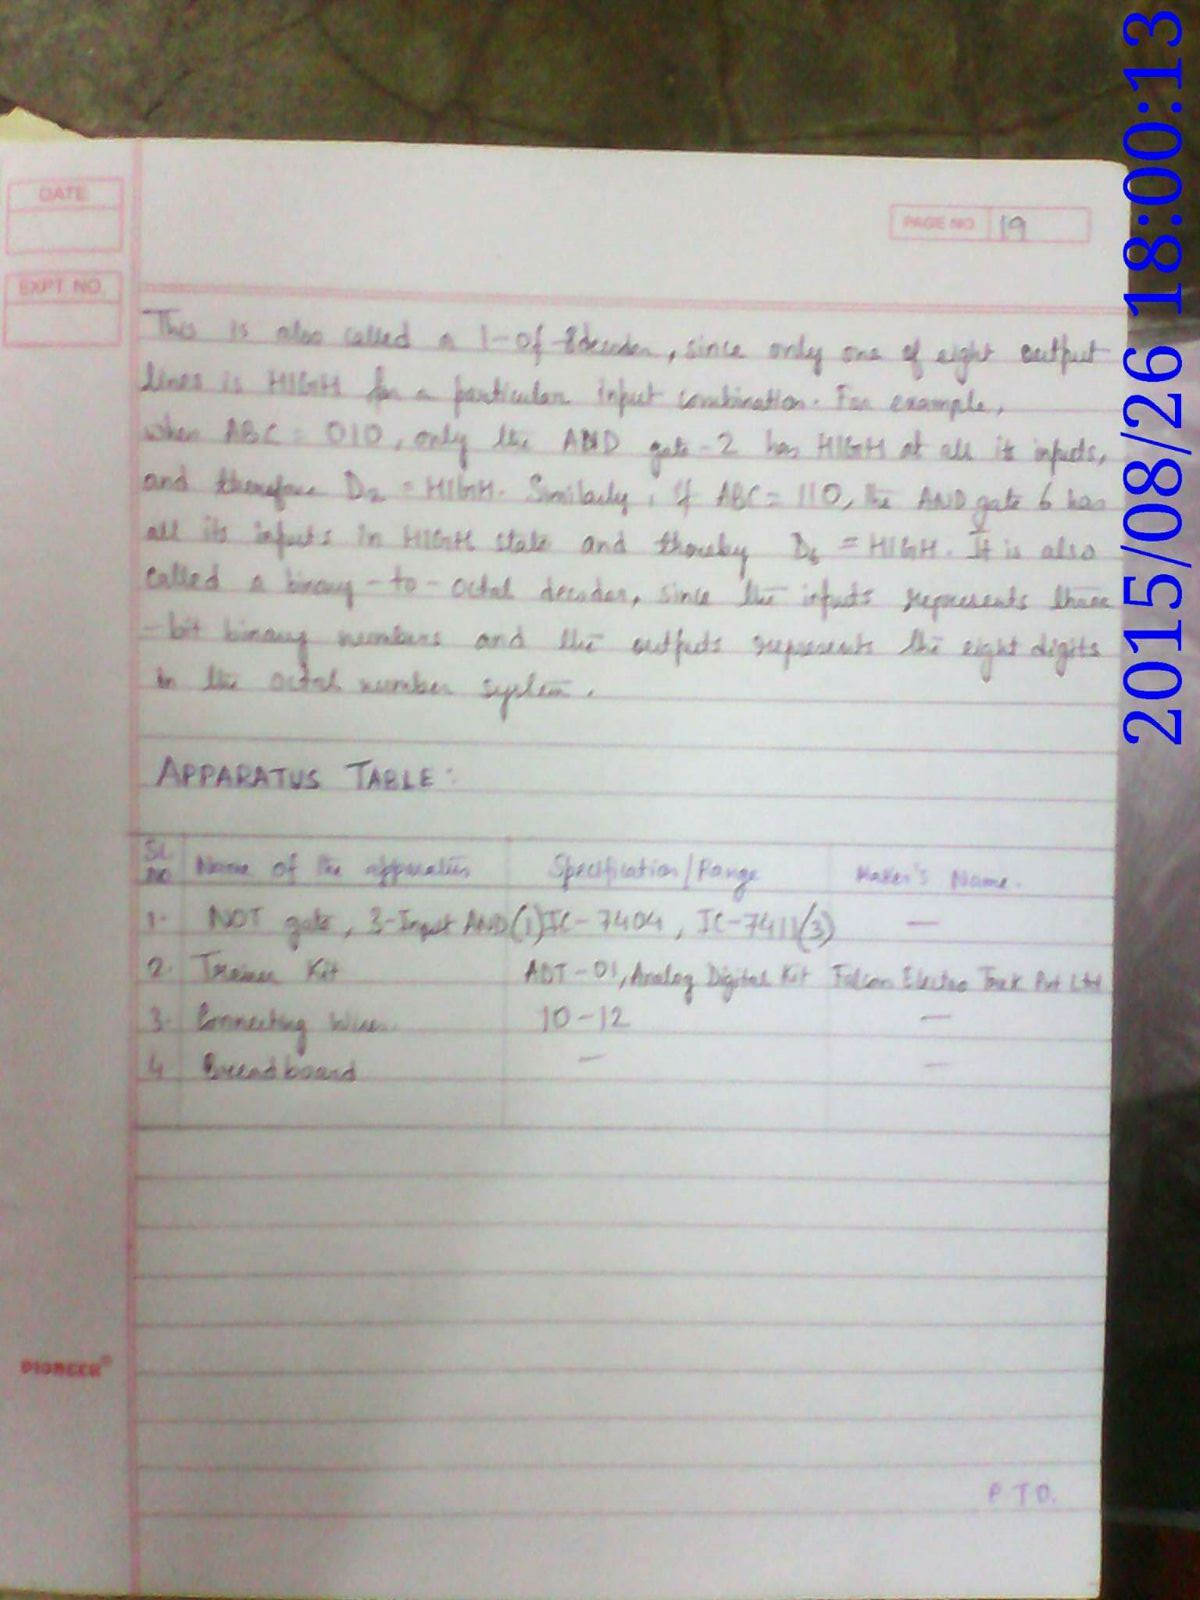 DATE
PAGE NO 19
EXPT NO.
This is also called a 1-of-8 decoder, since only one of eight output
lines is HIGH for a particular input combination. For example,
when ABC = 010, only the AND gate-2 has HIGH at all its inputs,
and therefore D2 = HIGH. Similarly, if ABC = 110, the AND gate 6 has
all its inputs in HIGH state and thereby D6 = HIGH. It is also
called a binary-to-octal decoder, since the inputs represents three
-bit binary numbers and the outputs represents the eight digits
in the octal number system.
APPARATUS TABLE:
SL NO Name of the apparatus Specification/Range Maker's Name.
1. NOT gate, 3-Input AND (1)IC-7404, IC-7411(3) —
2. Trainer Kit ADT-01, Analog Digital Kit Falcon Electro Pvt Ltd
3. Connecting Wires. 10-12 —
4. Breadboard — —
PIONEER®
P.T.O.
2015/08/26 18:00:13